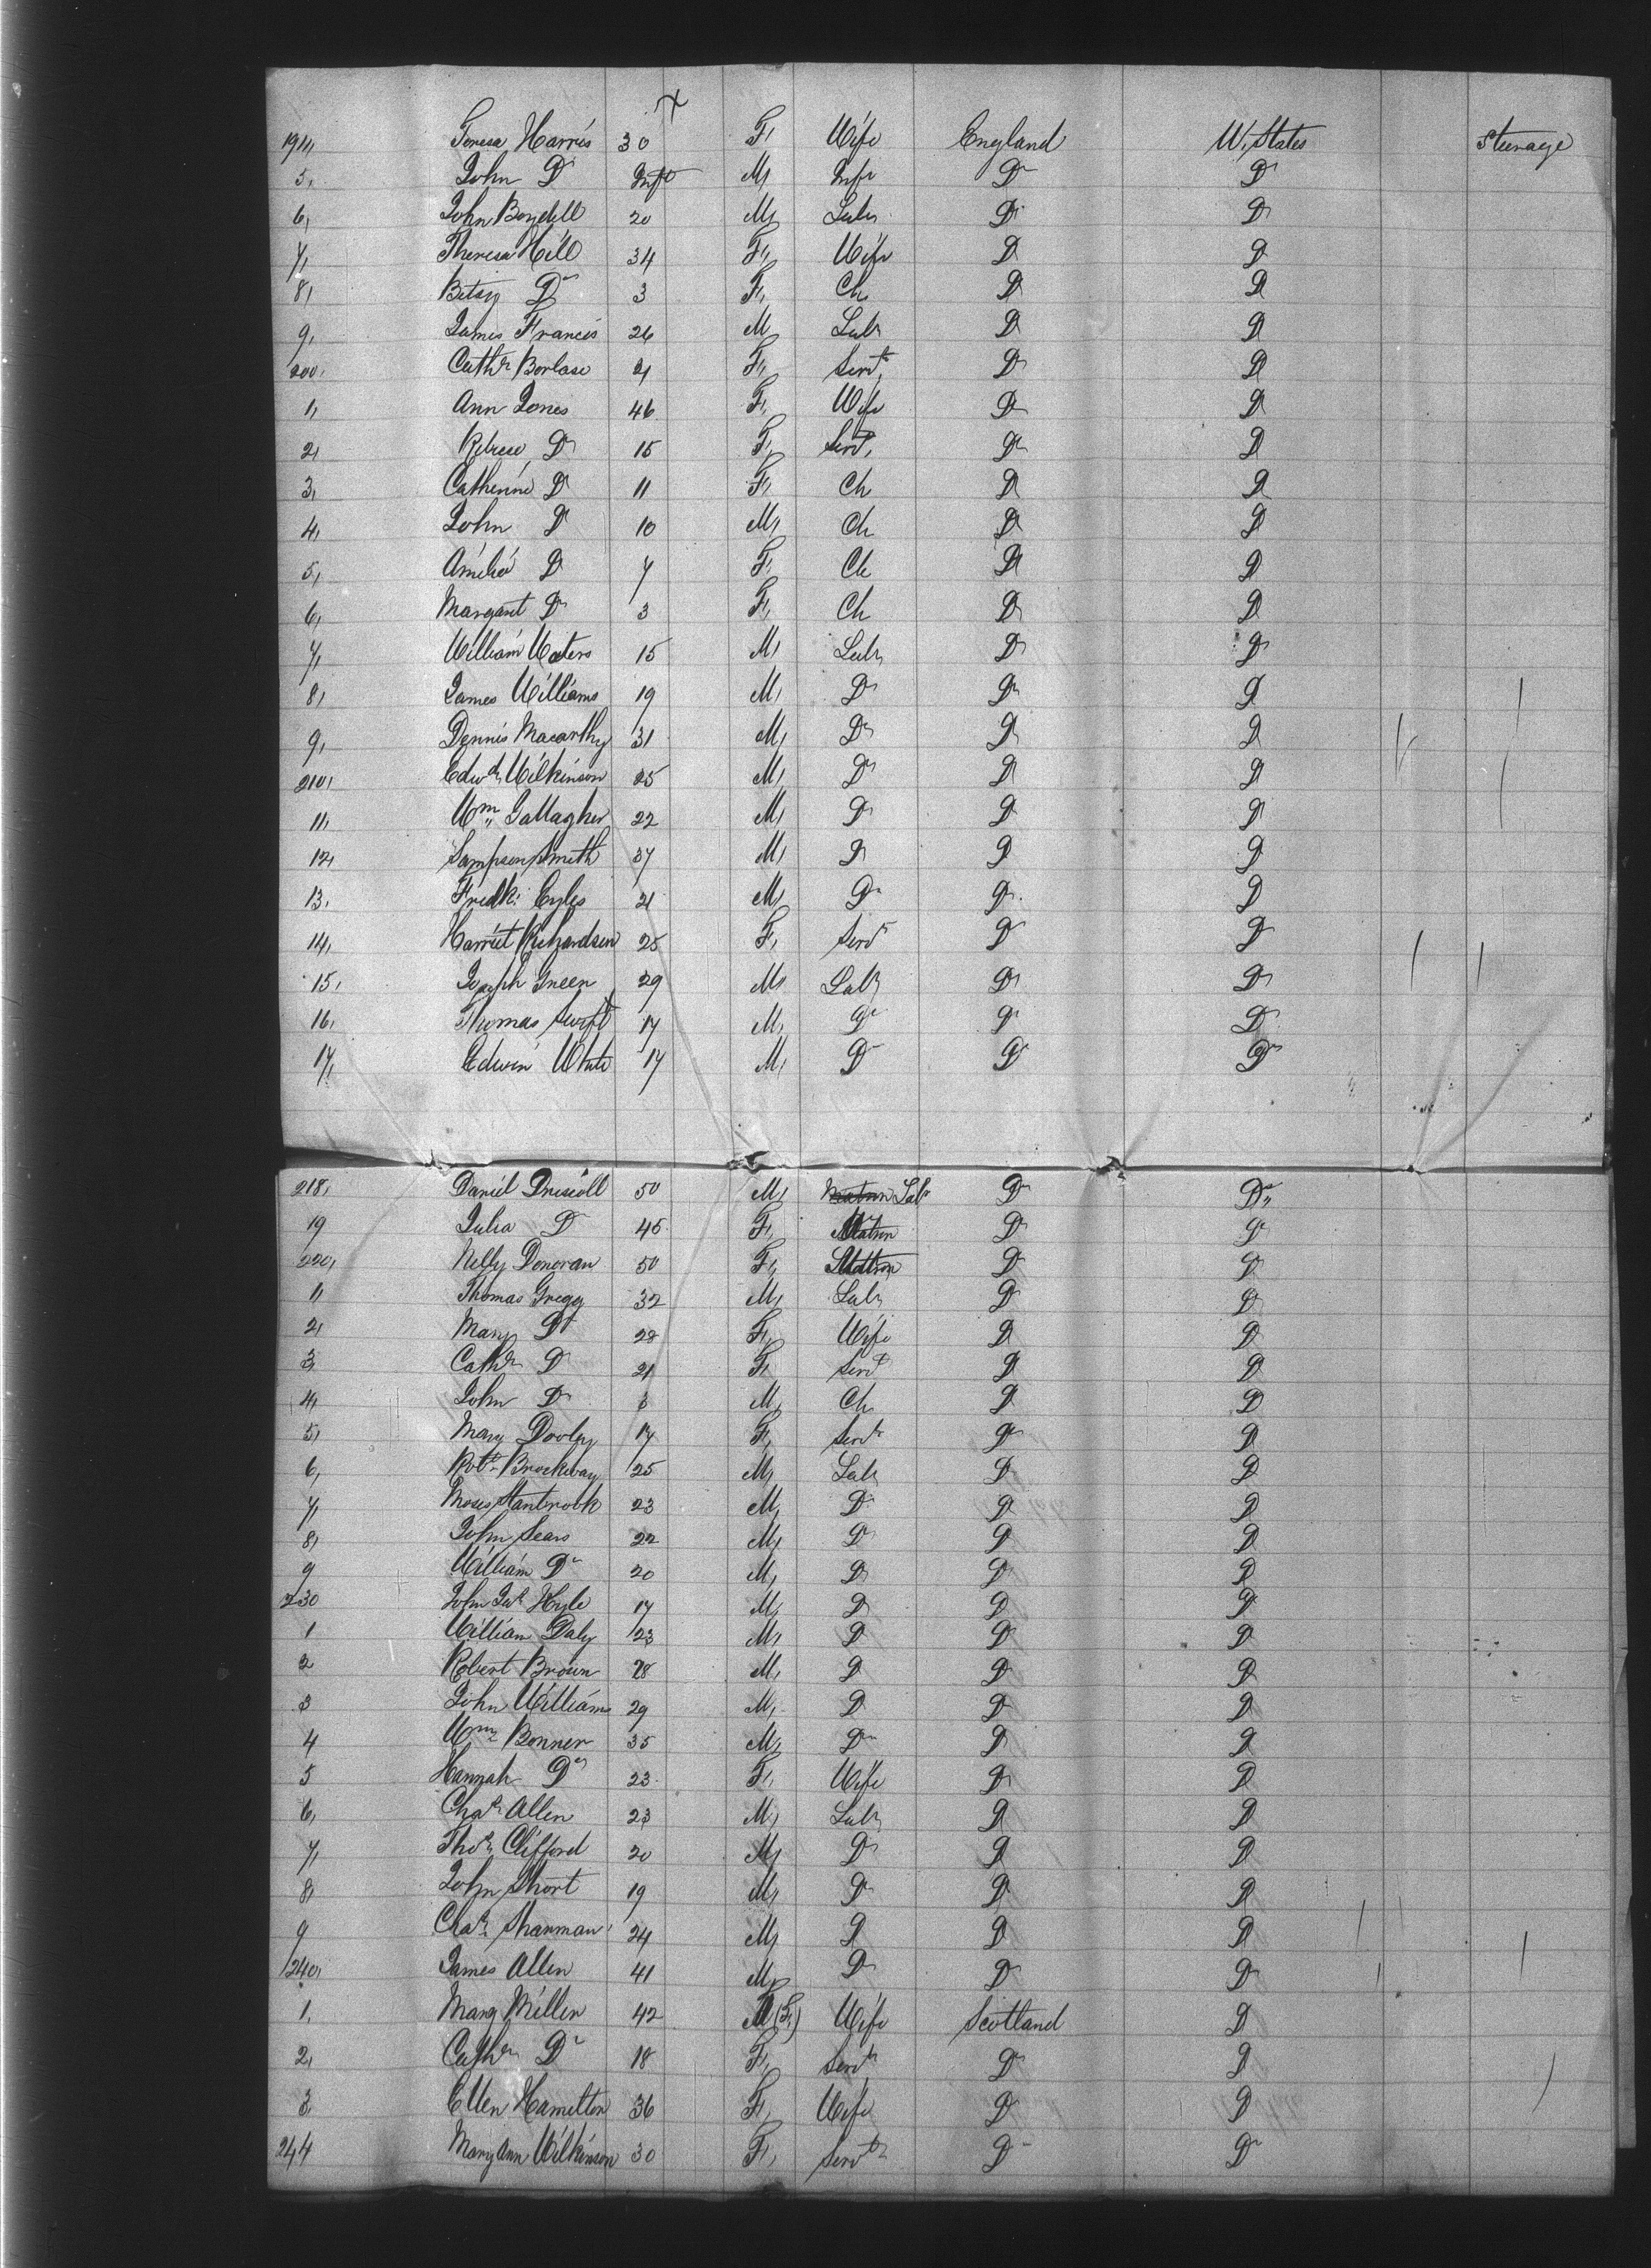 194, Teresa Harris 30 F, Wife England U, States Steerage
5, John Do Inft M, Inft Do Do
6, John Boydell 20 M, Labr Do Do
7, Theresa Hill 34 F, Wife Do Do
8, Betsy Do 3 F, Ch Do Do
9, James Francis 26 M, Labr Do Do
200, Cathr Borlase 21 F, Servt, Do Do
1, Ann Jones 46 F, Wife Do Do
2, Do 15 F, Servt, Do Do
3, Catherine Do 11 F, Ch Do Do
4, John Do 10 M, Ch Do Do
5, Amelia Do 7 F, Ch Do Do
6, Margaret Do 3 F, Ch Do Do
7, William Waters 15 M, Labr Do Do
8, James Williams 19 M, Do Do Do
9, Dennis Macarthy 31 M, Do Do Do
210, Edwd, Wilkinson 25 M, Do Do Do
11, Wm, Gallagher 22 M, Do Do Do
12, Sampson Smith 37 M, Do Do Do
13, Fredk: Eyles 21 M, Do Do Do
14, Harriet Richardson 25 F, Servt Do Do
15, Joseph Green 29 M, Labr Do Do
16, Thomas Swift 17 M, Do Do Do
17, Edwin White 17 M, Do Do Do
218, Daniel Driscoll 50 M, Matron Labr Do Do
19 Julia Do 45 F, Matron Do Do
220, Nelly Donovan 50 F, Matron Do Do
1, Thomas Gregg 32 M, Labr Do Do
2, Mary Do 28 F, Wife Do Do
3, Cathr Do 21 F, Servt Do Do
4, John Do 3 M, Ch Do Do
5, Mary Dooley 17 F, Servt Do Do
6, Robt Brockway 25 M, Labr Do Do
7, Moses Stanbrook 23 M, Do Do Do
8, John Sears 22 M, Do Do Do
9 William Do 20 M, Do Do Do
230 John Hyle 17 M, Do Do Do
1 William Daly 23 M, Do Do Do
2 Robert Brown 28 M, Do Do Do
3 John Williams 29 M, Do Do Do
4 Wm Bonner 35 M, Do Do Do
5 Hannah Do 23 F, Wife Do Do
6, Chas Allen 23 M, Labr Do Do
7, Thos, Clifford 20 M, Do Do Do
8, John Short 19 M, Do Do Do
9 Chas Sharman 24 M, Do Do Do
240, James Allen 41 M, Do Do Do
1, Mary Miller 42 M (F,) Wife Scotland Do
2, Cathr Do 18 F, Servt Do Do
3, Ellen Hamilton 36 F, Wife Do Do
244 Mary Ann Wilkinson 30 F, Servt Do Do